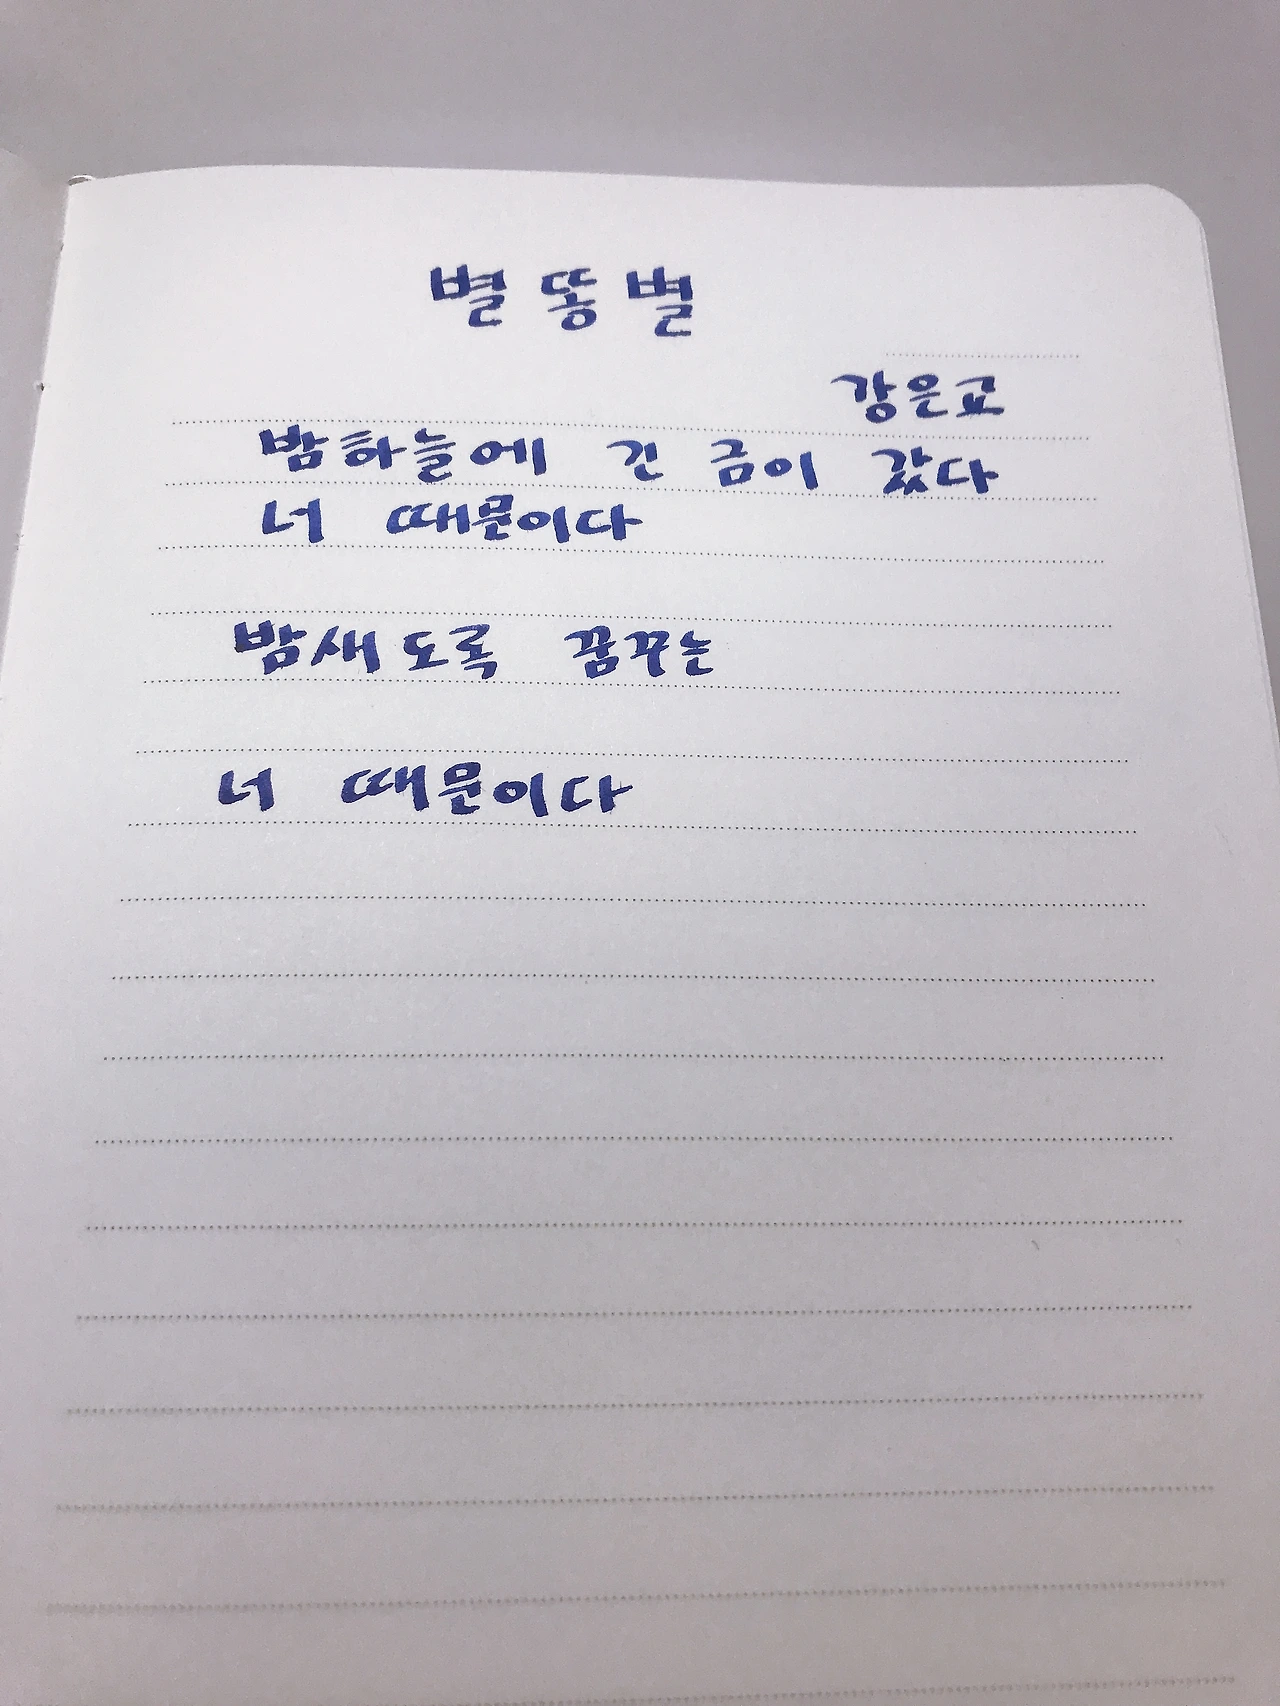 별똥별
강은교
밤하늘에 긴 금이 갔다
너 때문이다
밤새도록 꿈꾸는
너 때문이다